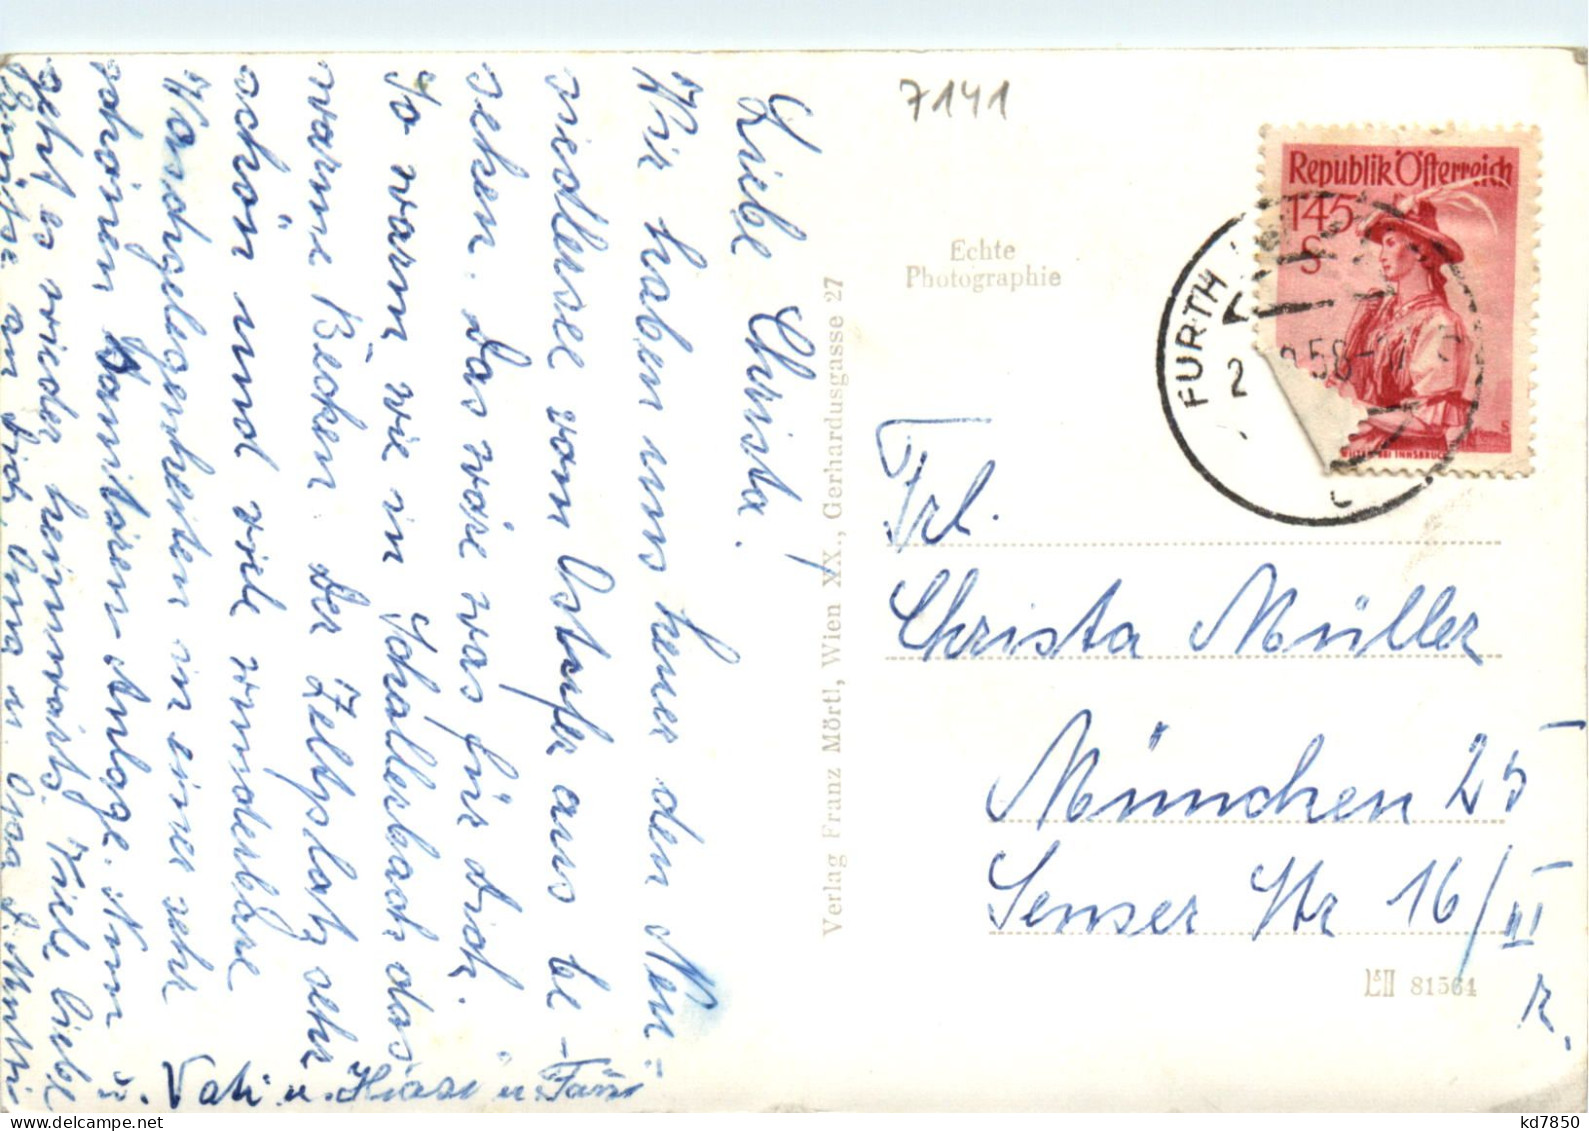 Liebe Christa!
Wir haben uns heuer den Neu-
siedlersee vom Ostufer aus be-
sehen. Das wäre was für Dich.
So warm, wie in Schallerbach das
warme Becken. Der Zeltplatz sehr
schön und viel wunderbare
Waschgelegenheiten in einer sehr
schönen sanitären Anlage. Nun
geht es wieder heimwärts. Viele liebe
Grüsse an Dich, Oma u. Opa D. Mutti
u. Vati u.
7141
Echte
Photographie
Verlag Franz Mörtl, Wien XX., Gerhardusgasse 27
Republik Österreich
1.45
S
WILTEN BEI INNSBRUCK
FURTH
2
58
Frl.
Christa Müller
München 25
Senser Str 16/III
r.
LII 81564
kd7850